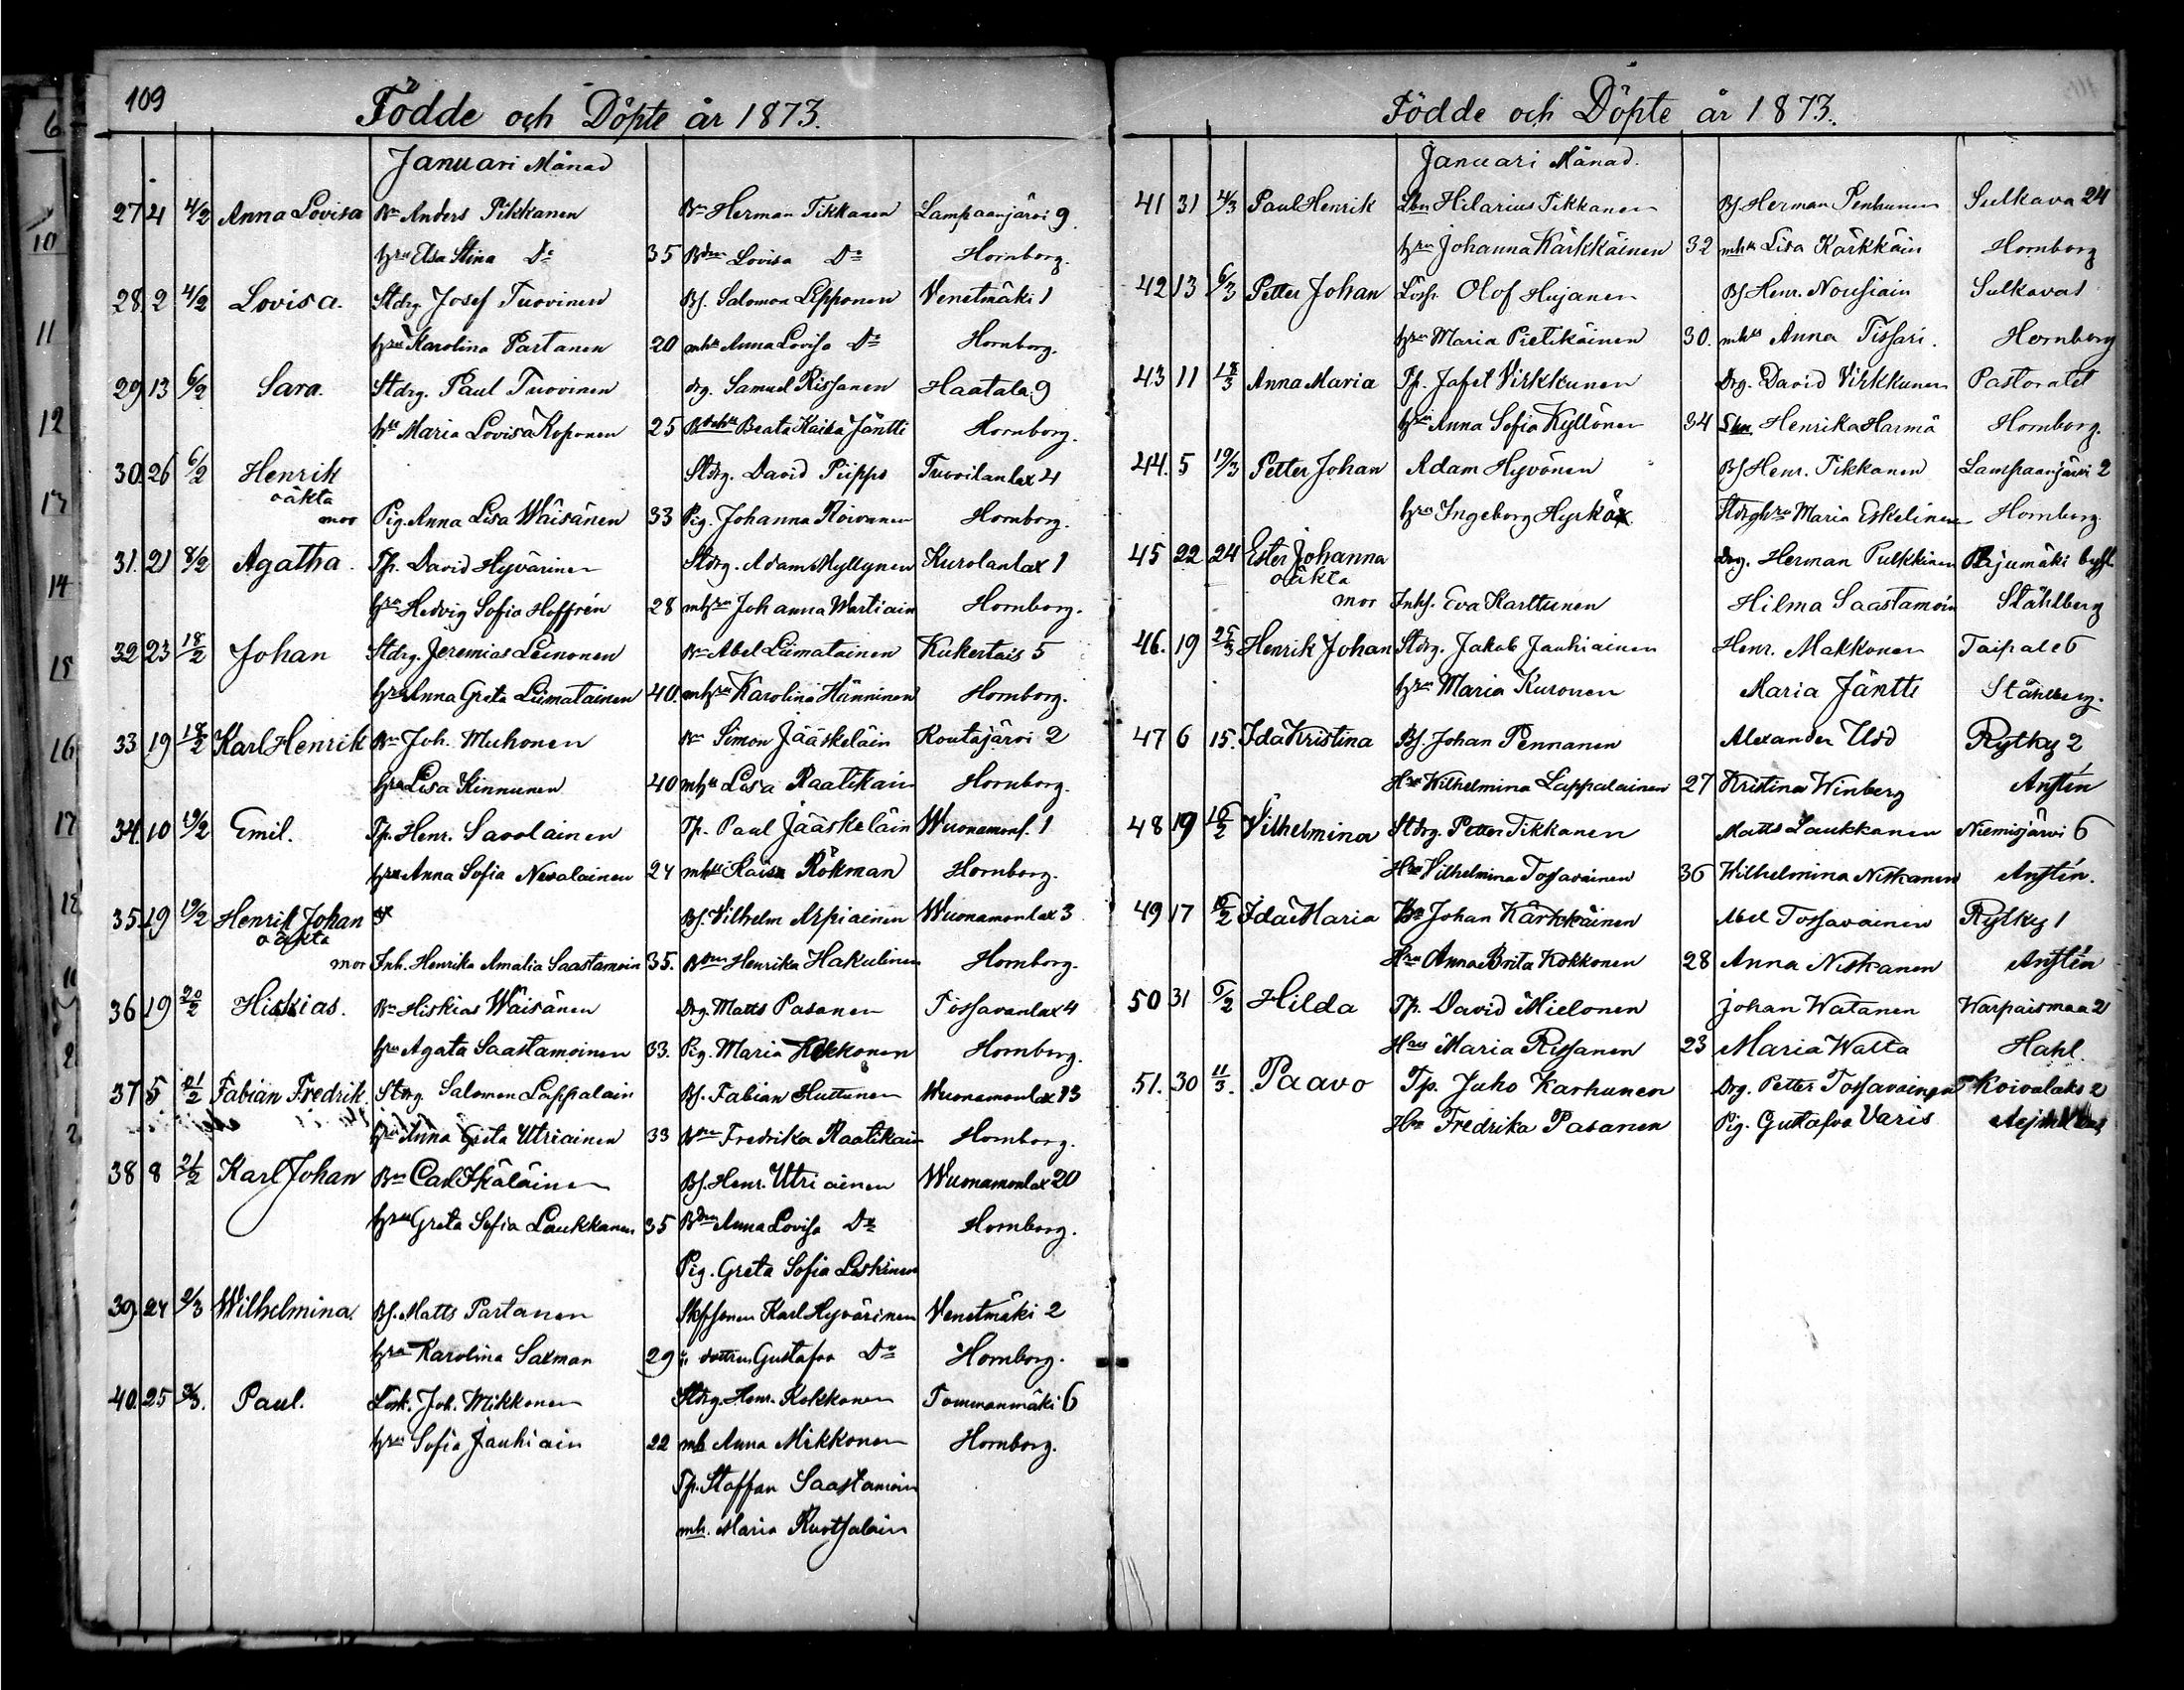 109
Födde och Döpte år 1873.
Januari Månad
27 4 4/2 Anna Lovisa Bn Anders Pikkanen Bn Herman Tikkanen Lampaanjärvi 9.
hru Elsa Stina Do 35 Bdrn Lovisa Do Hornborg.
28. 2 4/2 Lovisa. Stdrg. Josef Tuovinen Bs. Salomon Lipponen Venetmäki 1
hru Karolina Partanen 20 mhu Anna Lovisa Do Hornborg.
29 13 6/2 Sara. Stdrg. Paul Tuovinen drg. Samuel Rissanen Haatala 9
hu Maria Lovisa Koponen 25 Beata Kaisa Jäntti Hornborg.
30. 26 6/2 Henrik Stdrg. David Piippo Tuovilanlax 4
oäkta
mor Pig. Anna Lisa Wäisänen 33 Pig. Johanna Roivanen Hornborg.
31. 21 8/2 Agatha. Tp. David Hyvärinen Stdrg. Adam Myllynen Kurolanlax 1
hru Hedvig Sofia Hoffrén 28 mhru Johanna Martiain Hornborg.
32 23 18/2 Johan Stdrg. Jeremias Leinonen Bn Abel Liimatainen Kukertais 5
hru Anna Greta Liimatainen 40. mhru Karolina Hänninen Hornborg.
33 19 18/2 Karl Henrik Bn Joh. Muhonen Bn Simon Jääskeläin Koutajärvi 2
hru Lisa Kinnunen 40 mhu Lisa Raatikain Hornborg.
34. 10 19/2 Emil. Tp. Henr. Savolainen Tp. Paul Jääskeläin Wuonamonl. 1
hru Anna Sofia Nevalainen 24 mhu Kaisa Rökman Hornborg.
35. 19 19/2 Henrik Johan Bs. Vilhelm Arpiainen Wuonamonlax 3
oäkta
mor Inh. Henrika Amalia Saastamoin 35. Henrika Hakulinen Hornborg.
36 19 20/2 Hiskias. Bn Hiskias Wäisänen Drg. Matts Pasanen Tossavanlax 4
hru Agata Saastamoinen 33. Pig. Maria Kokkonen Hornborg.
37 5 21/2 Fabian Fredrik. Stdrg Salomon Lappalain Bs. Fabian Huttunen Wuonamonlax 13
hru Anna Greta Utriainen 33 Fredrika Raatikain Hornborg.
38 8 21/2 Karl Johan Bn Carl Ikäläinen Bs. Henr. Utriainen Wuonamonlax 20
hru Greta Sofia Laukkanen 35 Bdrn Anna Lovisa Do Hornborg.
Pig. Greta Sofia Leskinen
39 24 2/3 Wilhelmina. Bs. Matts Partanen Karl Hyvärinen Venetmäki 2
hru Karolina Saxman 29 dottren Gustafva Do Hornborg.
40. 25 3/3. Paul. Lösk. Joh. Mikkonen Stdrg. Henr. Kokkonen Tommonmäki 6
hru Sofia Jauhiain 22 mh Anna Mikkonen Hornborg.
Tp. Staffan Saastamoin
mh. Maria Ruotsalain
Födde och Döpte år 1873.
Januari Månad.
41 31 4/3 Paul Henrik Hilarius Tikkanen Bs. Herman Penhunen Sulkava 24
hru Johanna Kärkkäinen 32 mhu Lisa Kärkkäin Hornborg
42 13 6/3 Petter Johan Olof Hujanen Bs Henr. Nousiain Sulkava 1
hru Maria Pietikäinen 30. mhu Anna Tissari. Hornborg
43 11 18/3 Anna Maria Tp. Jafet Virkkunen Drg. David Virkkunen Pastoratet
hru Anna Sofia Kyllönen 34 Henrika Harmä Hornborg.
44. 5 19/3 Petter Johan Adam Hyvönen Bs Henr. Tikkanen Lampaanjärvi 2
hru Ingeborg Hyrkäs Stdrghru Maria Eskelinen Hornborg
45 22 24 Ester Johanna drg. Herman Pulkkinen Pajumäki
oäkta
mor Inhs. Eva Karttunen Hilma Saastamoin Ståhlberg
46. 19 25/3 Henrik Johan Stdrg. Jakob Jauhiainen Henr. Makkonen Taipale 6
hru Maria Kuronen Maria Jäntti Ståhlberg.
47 6 15. Ida Kristina Bs. Johan Pennanen Alexander Udd Rytky 2
Hru Wilhelmina Lappalainen 27 Kristina Winberg Anstén
48 19 16/2 Vilhelmina Stdrg. Petter Tikkanen Matts Laukkanen Niemisjärvi 6
Hru Vilhelmina Tossavainen 36 Wilhelmina Niskanen Anstén.
49 17 16/2 Ida Maria Bn Johan Kärkkäinen Abel Tossavainen Rytky 1
Hru Anna Brita Kokkonen 28 Anna Niskanen Anstén
50 31 6/2 Hilda Tp. David Mielonen Johan Watanen Warpaismaa 2
Hru Maria Rissanen 23 Maria Watta Hahl.
51. 30 11/3. Paavo Tp. Juho Karhunen Drg. Petter Tossavainen Koivulaks 2
Hru Fredrika Pasanen Pig. Gustafva Varis